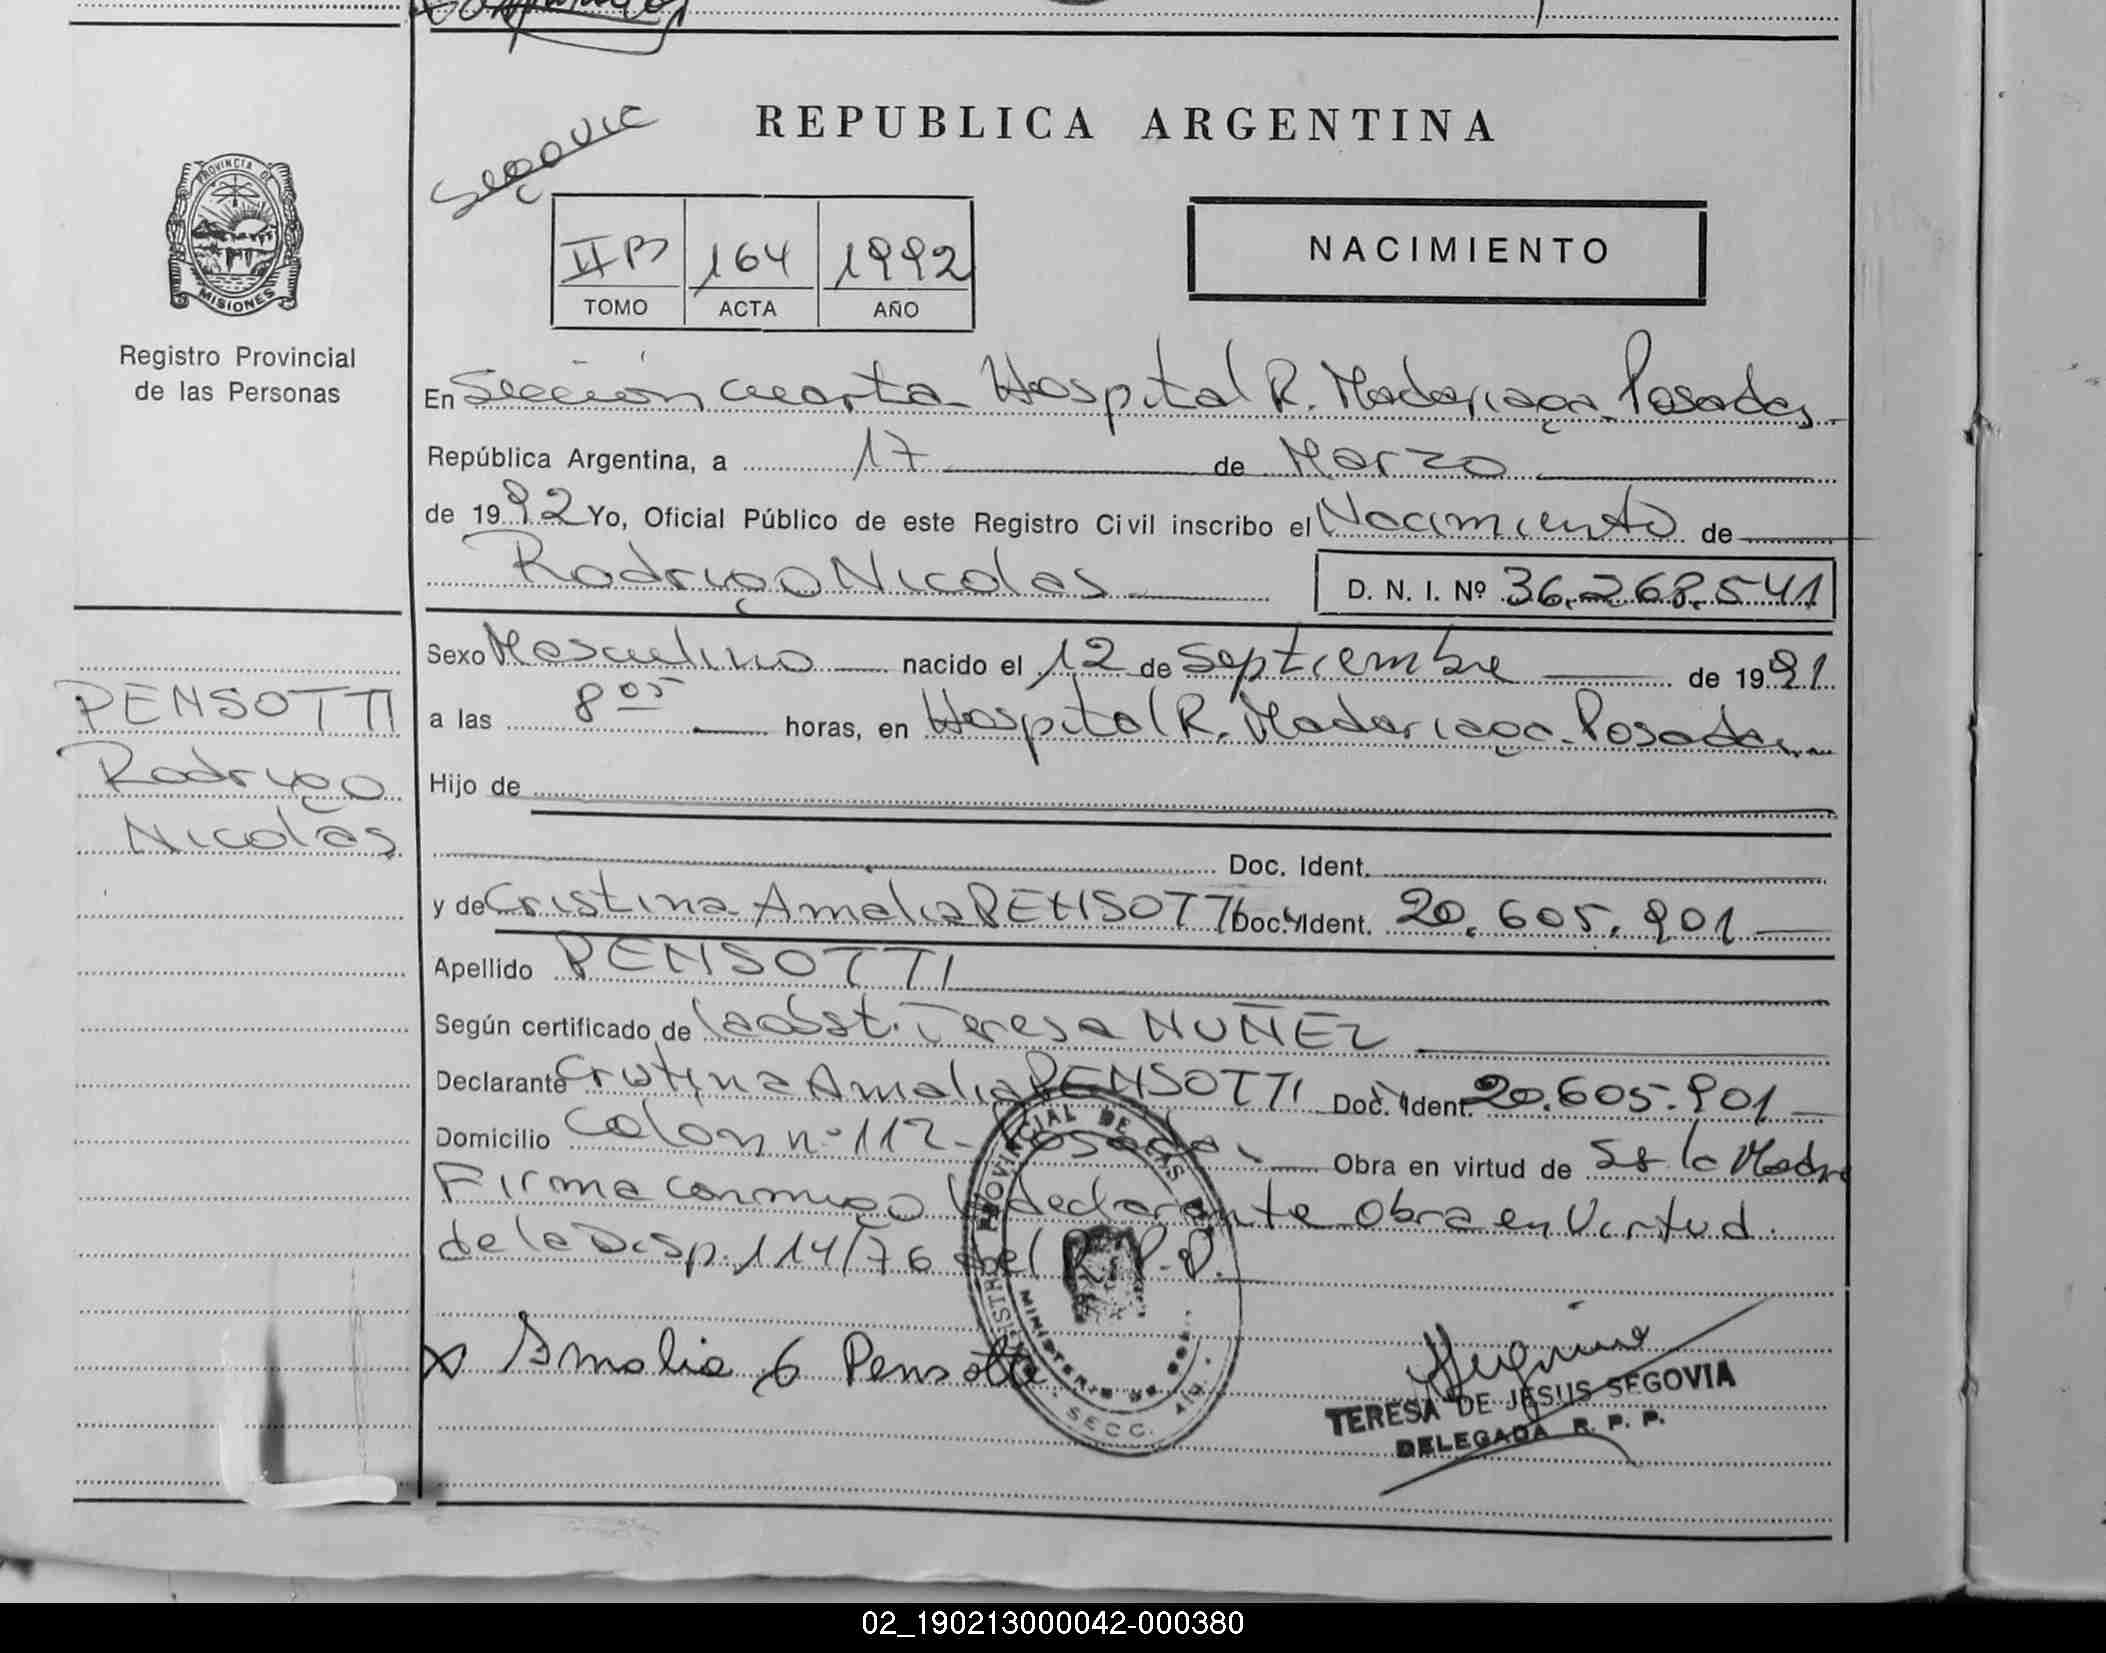 REPUBLICA ARGENTINA
Segovic
PROVINCIA DE
MISIONES
IIB 164 1992
TOMO ACTA AÑO
NACIMIENTO
Registro Provincial
de las Personas
En Sección cuarta - Hospital R. Madariaga - Posadas -
República Argentina, a 17 de Marzo
de 1992 Yo, Oficial Público de este Registro Civil inscribo el Nacimiento de
Rodrigo Nicolas D. N. I. Nº 36.268.541
Sexo Masculino nacido el 12 de Septiembre de 1991
a las 8 05 horas, en Hospital R. Madariaga - Posadas
Hijo de
Doc. Ident.
y de Cristina Amalia PENSOTTI Doc. Ident. 20.605.901
PENSOTTI
Rodrigo
Nicolás
Apellido PENSOTTI
Según certificado de la obst. Teresa NUÑEZ
Declarante Cristina Amalia PENSOTTI Doc. Ident. 20.605.901
Domicilio Colon nº 112 - Posadas Obra en virtud de Ser la Madre
Firma conmigo la declarante Obra en Virtud
de la Disp. 114/76 del R.P.P.
PROVINCIAL DE LAS
MINISTERIO DE
SECC. 4ta.
Amalia C Pensotti
TERESA DE JESUS SEGOVIA
DELEGADA R. P. P.
02_190213000042-000380